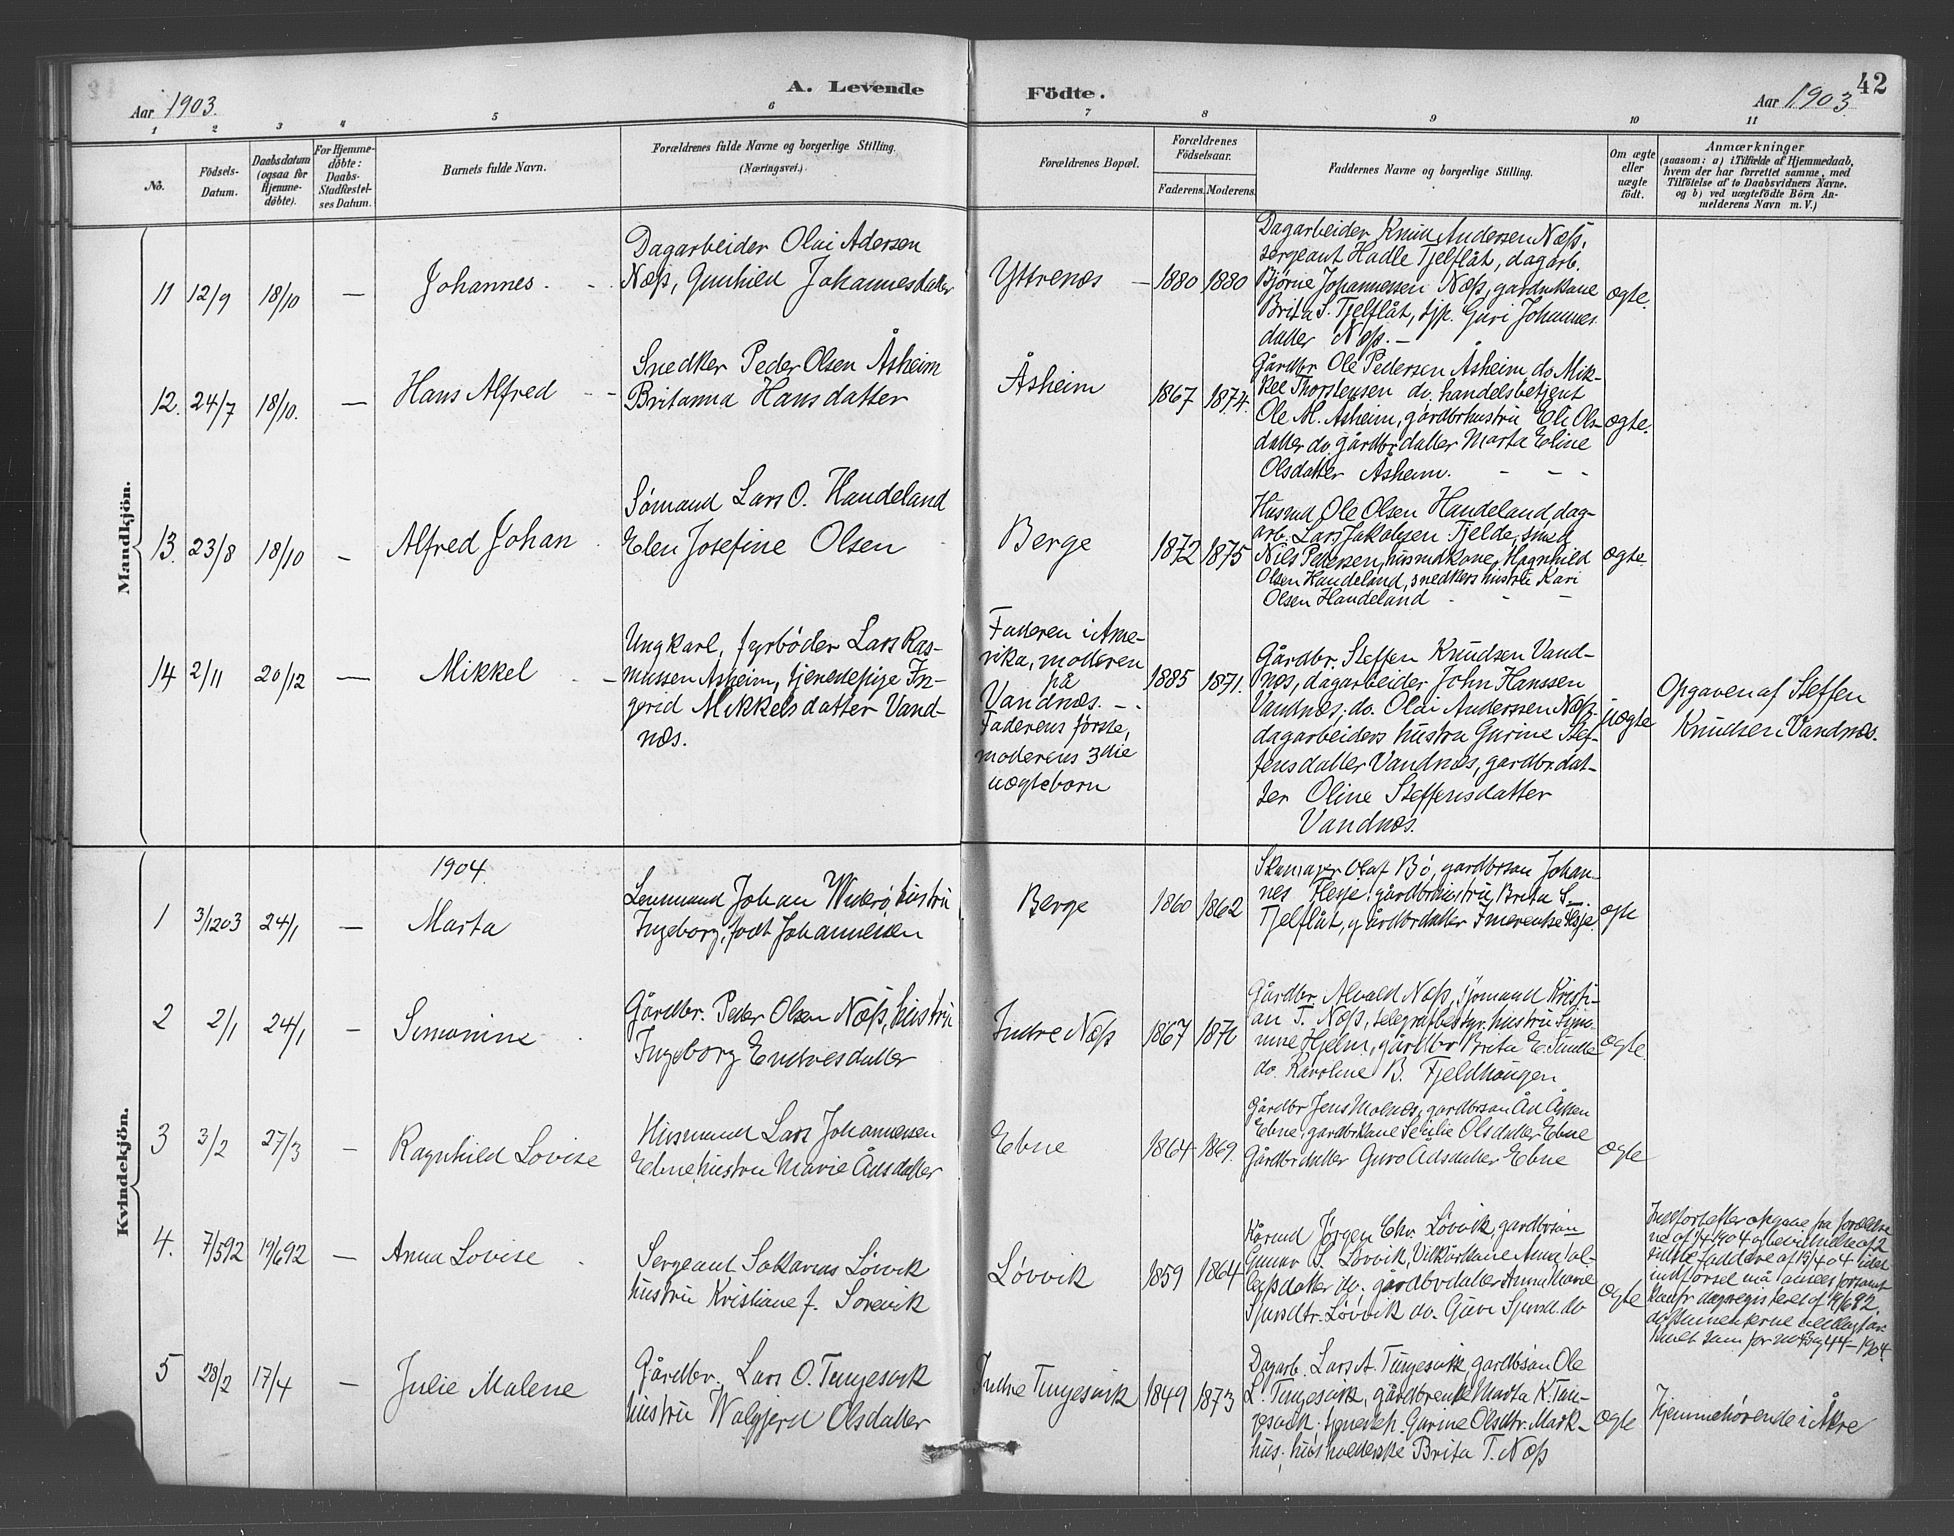 Aar 1903.
A. Levende Födte.
Aar 1903.
42
1 2 3 4 5 6 7 8 9 10 11
No.
Födsels-Datum.
Daabsdatum (ogsaa for Hjemme-döbte).
For Hjemme-döbte: Daabs-Stadfæstel-ses Datum.
Barnets fulde Navn.
Forældrenes fulde Navne og borgerlige Stilling.
(Næringsvei.)
Forældrenes Bopæl.
Forældrenes Födselsaar.
Faderens. Moderens.
Faddernes Navne og borgerlige Stilling.
Om ægte eller uægte födt.
Anmærkninger
(saasom: a) i Tilfælde af Hjemmedaab,
hvem der har forrettet samme, med
Tilföielse af to Daabsvidners Navne,
og b) ved uægtefödte Börn An-
melderens Navn m. V.)
Mandkjön.
11 12/9 18/10 — Johannes.
Dagarbeider Olai Adersen
Næss, Gunhild Johannesdatter
Yttrenæs — 1880 1880
Dagarbeider Knut Andersen Næss,
sergeant Hadle Tjelflåt, dagarb.
Bjørne Johannessen Næss, gardmkone
Brita S. Tjelflåt, tjp. Guri Johannes
datter Næss. —
ægte.
12. 24/7 18/10. — Hans Alfred
Snedker Peder Olsen Åsheim
Britanna Hansdatter
Åsheim 1867 1874.
Gårdbr. Ole Pedersen Åsheim do Mik-
kel Thorstensen do. handelsbetjent
Ole M. Åsheim, gårdbrhustru Eli Ols-
datter do. gårdbrdatter Marta Eline
Olsdatter Åsheim.
ægte.
13. 23/8 18/10 — Alfred Johan
Sømand Lars O. Handeland
Elen Josefine Olsen
Berge 1872 1875
Husmd Ole Olsen Handeland, dag-
arb. Lars Jakobsen Tjelde, smed
Nils Pedersen, husmdkone Ragnhild
Olsen Handeland, snedkers hustru Kari
Olsen Handeland
ægte.
14 2/11 20/12 — Mikkel
Ungkarl, fyrbøder Lars Ras-
mussen Åsheim, tjenestepige In-
gerid Mikkelsdatter Vand-
næs.
Faderen i Ame-
rika, moderen
på
Vandnæs.
Faderens første,
moderens 3die
uægtebarn
1885 1871.
Gårdbr. Steffen Knudsen Vand-
næs, dagarbeider John Hanssen
Vandnæs, do. Olai Anderssen Næss
dagarbeiders hustru Gurine Stef-
fensdatter Vandnæs, gardbrdat-
ter Oline Steffensdatter
Vandnæs.
uægte
Opgaven af Steffen
Knudsen Vandnæs.
Kvindekjön.
1904.
1 3/12 03 24/1 — Marta
Lensmand Johan hustru
Ingeborg, født Johannesen
Berge 1860 1862
Skomager Olaf Bø, gardbrsøn Johan-
nes gårdbrhustru Brita S.
Tjelflåt, gårdbrdatter
ægte
2 2/1 24/1 — Simonine
Gårdbr. Peder Olsen Næss, hustru
Ingeborg Endresdatter
Indre Næss 1867 1872
Gårdbr. Alvald Næss, sjømand Kristi-
an T. Næss, telegrafbestyr. hustru Simo-
nine Hjelm, gårdbr Brita E.
do. Karoline B. Fjeldhaugen
ægte
3 3/2 27/3 — Ragnhild Lovise
Husmand Lars Johannesen
Ebne, hustru Marie Ådsdatter
Ebne 1864 1869.
Gårdbr Jens Molnæs, gardbrsøn Åd
Ebne, gardbrkone Sesilie Olsdatter Ebne
Gårdbrdatter Guro Adsdatter Ebne
ægte
4. 7/5 92 19/6 92 — Anna Lovise
Sergeant Sakarias Løvvik
hustru Kristiane f. Sørevik
Løvvik 1859 1864
Kårmd Jørgen Chr. Løvvik, gardbrsøn
Gunar S. Løvvik, Vilkårkone Anna
datter do. gardbrdatter Anna Marie
Sjursdtr. Løvvik do. Guri Sjursd. do
ægte
Indført efter opgave fra forældre-
ne af 14-4 04 og bevidnelse af 2
faddere af 15/4 04
indførsel må ansees
dagregisteret af 19/6 92.
44-1904.
5 28/2 17/4 — Julie Malene
Gårdbr. Lars O. Tungesvik
hustru Walgjerd Olsdatter
Indre Tungesvik 1849 1873
Dagarb. Lars A. Tungesvik, gardbrsøn Ole
L. Tungesvik, gårdbrenke Marta K. Tun-
gesvik, tjenestep. Gurine Olsdtr. Mark-
hus, husholderske Brita T. Næss
ægte
Hjemmehørende i Åkre